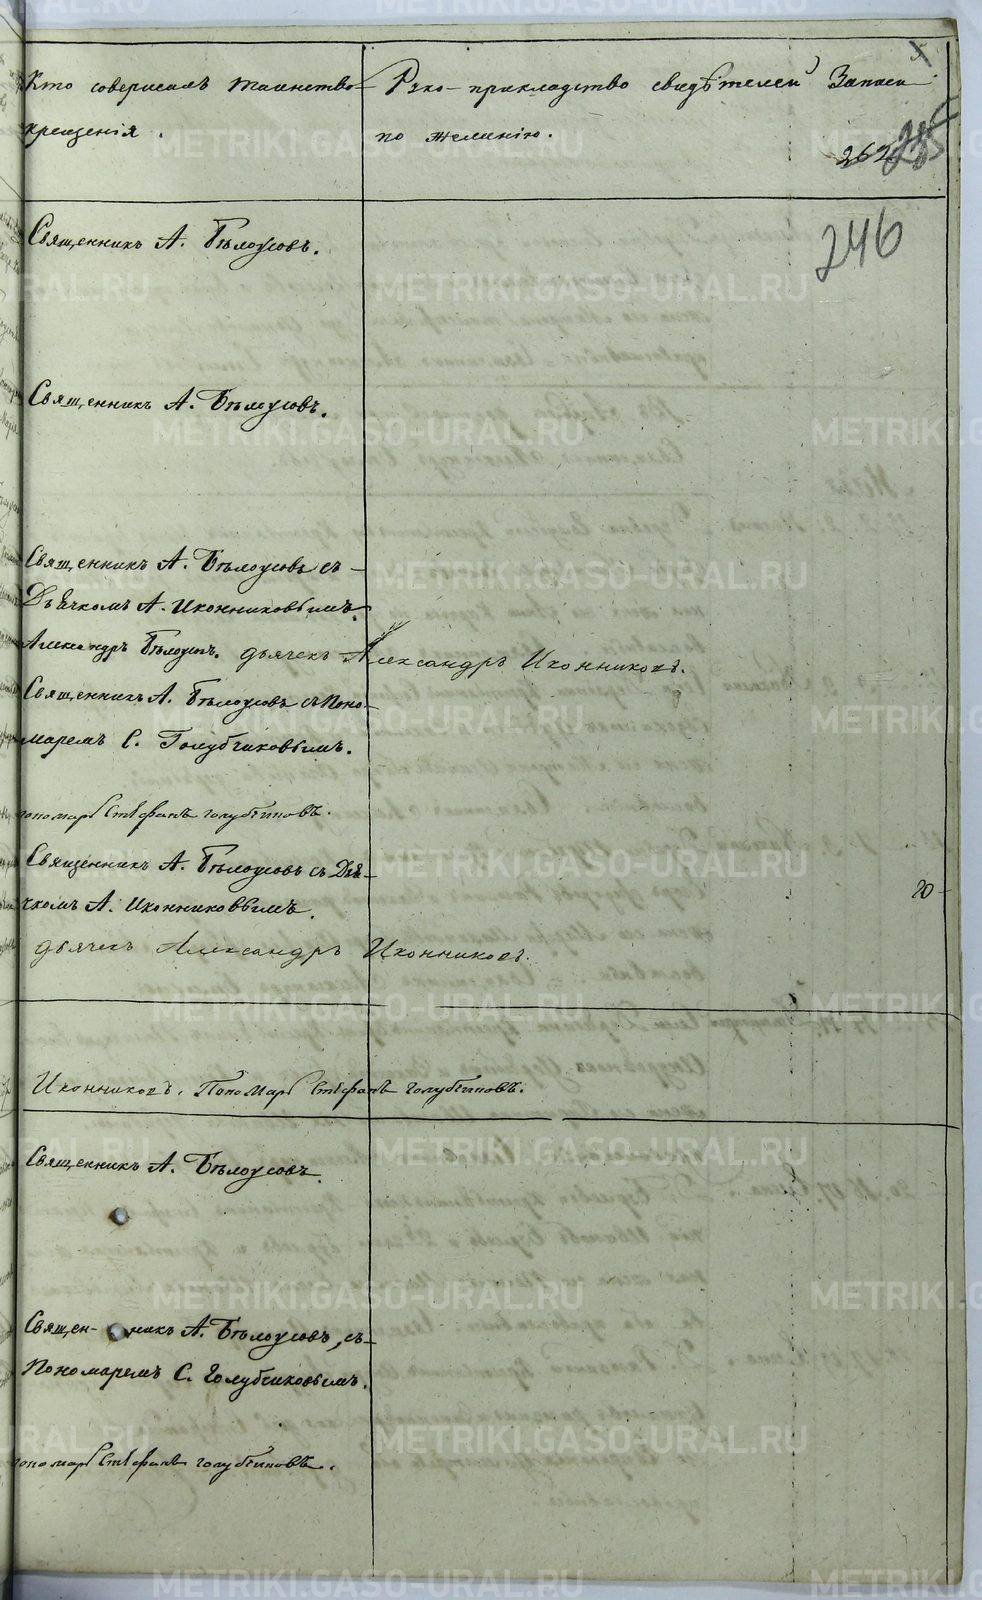 Кто совершалъ таинство
крещенія.
Руко-прикладство свидѣтелей записи
по желанію.
262
246
Священникъ А. Бѣлоусовъ.
Священникъ А. Бѣлоусовъ.
Священникъ А. Бѣлоусовъ съ
Дьячкомъ А. Иконниковымъ.
Александръ Бѣлоусовъ. дьячекъ Александръ Иконниковъ.
Священникъ А. Бѣлоусовъ съ Поно-
маремъ С. Голубчиковымъ.
пономарь Стефанъ голубчиковъ.
Священникъ А. Бѣлоусовъ съ Дья-
чкомъ А. Иконниковымъ.
20
дьячекъ Александръ Иконниковъ.
Иконниковъ. Пономарь Стефанъ голубчиковъ.
Священникъ А. Бѣлоусовъ.
Священ-никъ А. Бѣлоусовъ, съ
Пономаремъ С. Голубчиковымъ.
пономарь Стефанъ голубчиковъ.
METRIKI.GASO-URAL.RU